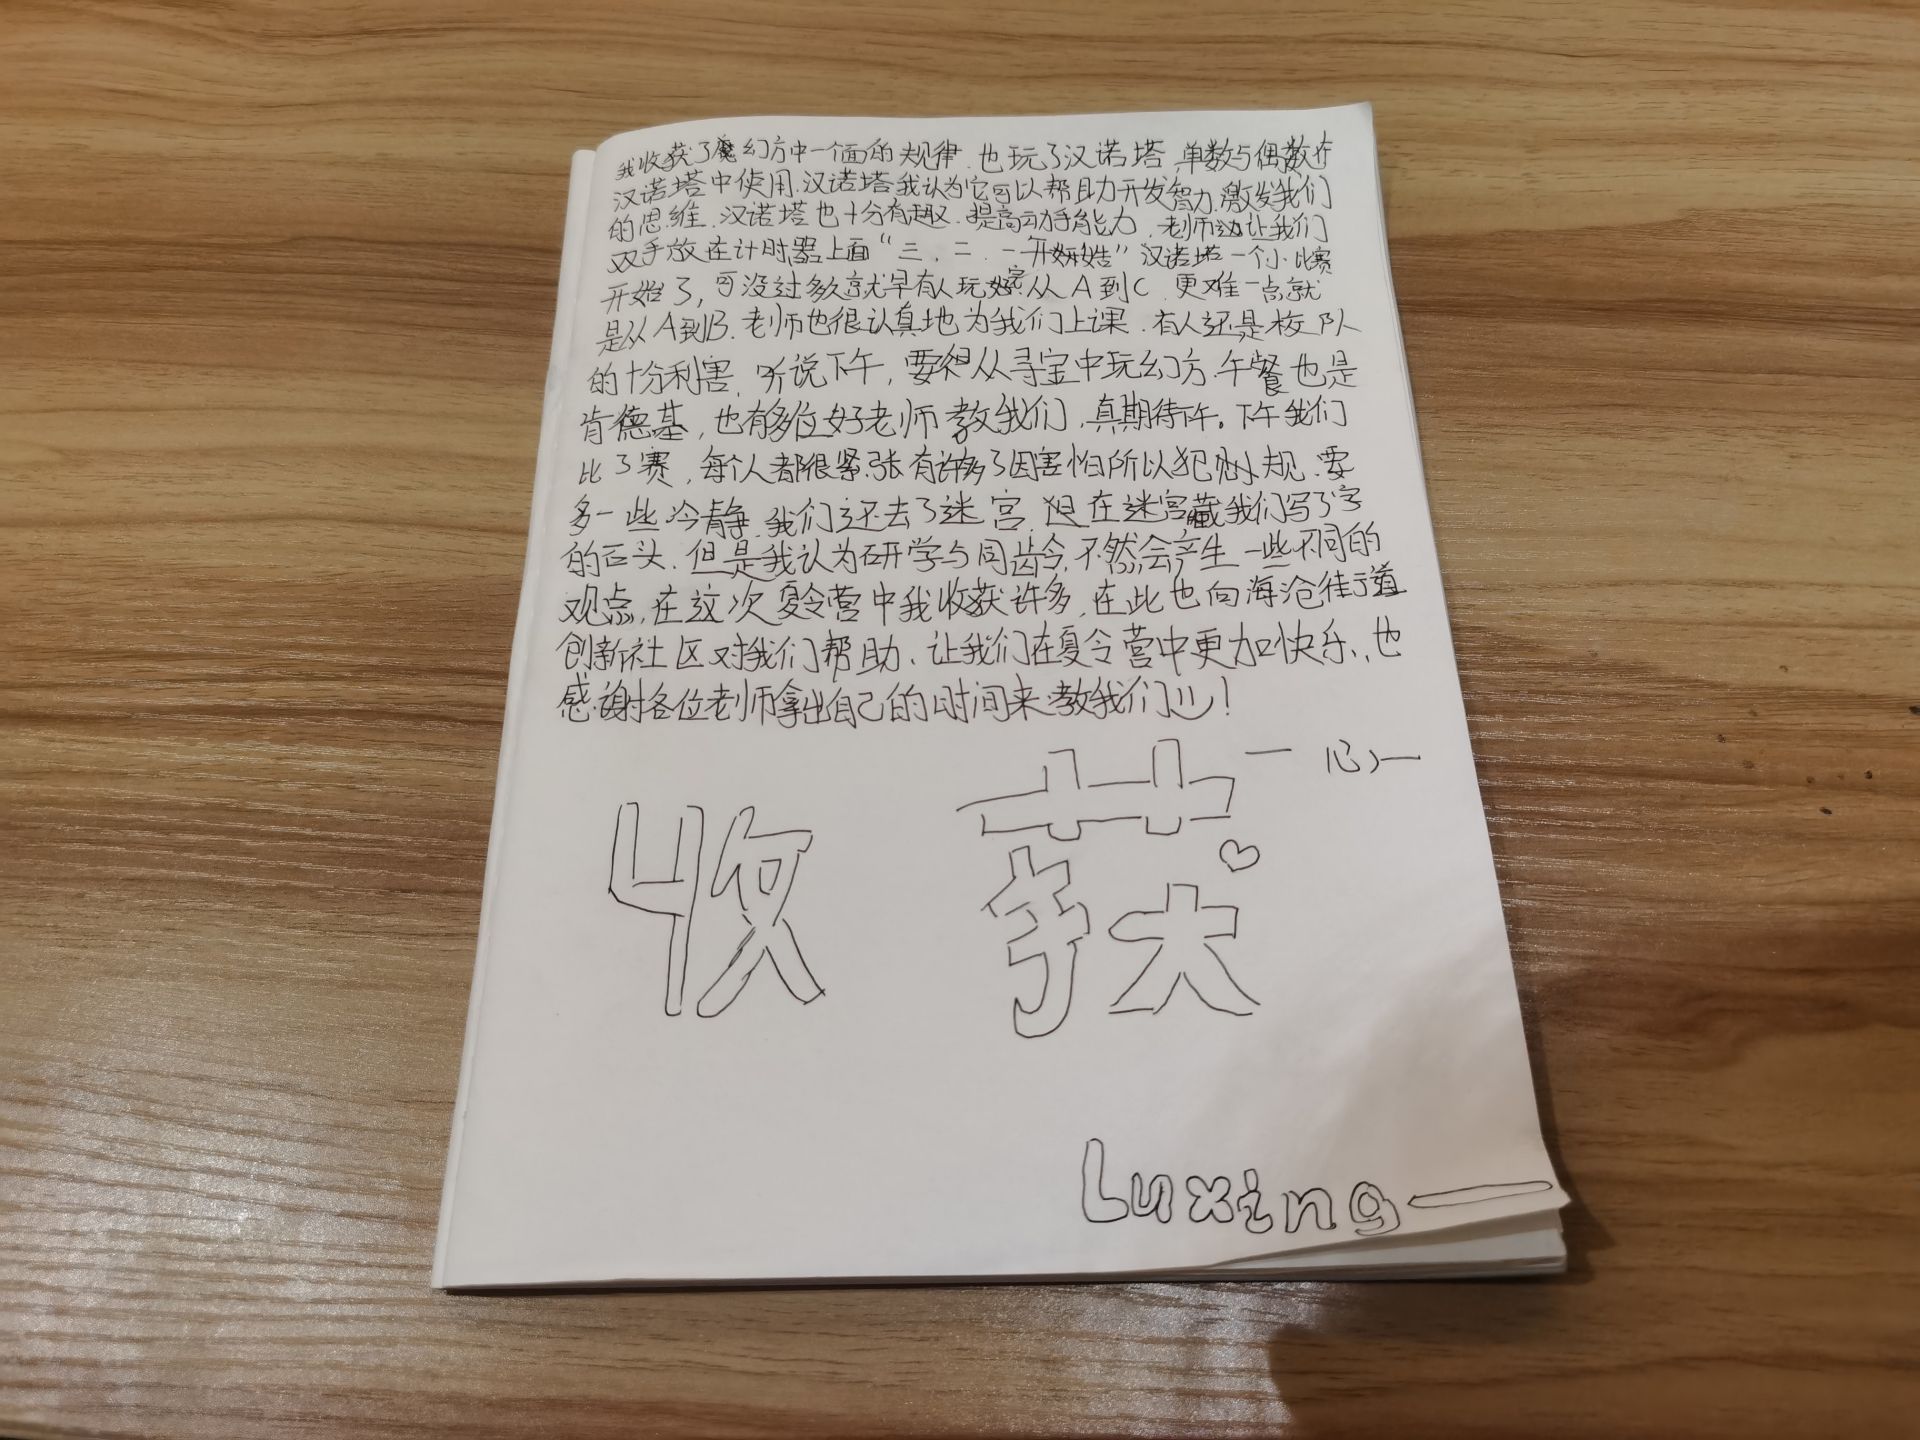 我收获了魔幻方中一个面的规律.也玩了汉诺塔,单数与偶数在
汉诺塔中使用.汉诺塔我认为它可以帮助开发智力.激发我们
的思维.汉诺塔也十分有趣.提高动手能力.老师边让我们
双手放在计时器上面“三、二、一开始”汉诺塔一个小比赛
开始了,可没过多久就早有人玩完从A到C.更难一点就
是从A到B.老师也很认真地为我们上课.有人还是校队
的十分利害.听说下午,要从寻宝中玩幻方.午餐也是
肯德基,也有多位好老师教我们,真期待下午。下午我们
比了赛,每个人都很紧张有许多了因害怕所以犯规.要
多一些冷静.我们还去了迷宫.但在迷宫藏我们写了字
的石头.但是我认为研学与同龄.不然会产生一些不同的
观点.在这次夏令营中我收获许多,在此也向海沧街道
创新社区对我们帮助、让我们在夏令营中更加快乐.,也
感谢各位老师拿出自己的时间来教我们!
一 心
收 获
Luxing